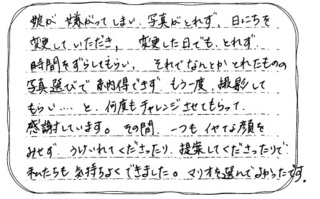 娘が嫌がってしまい、写真がとれず、日にちを
変更していただき、変更した日でも、とれず
時間をずらしてもらい、それでなんとかとれたものの
写真選びで納得できず もう一度、撮影して
もらい…と、何度もチャレンジさせてもらって
感謝しています。その間、一つもイヤな顔を
みせず、うけいれてくださったり、提案してくださったりで
私たちも気持ちよくできました。マリオを選んでよかったです。